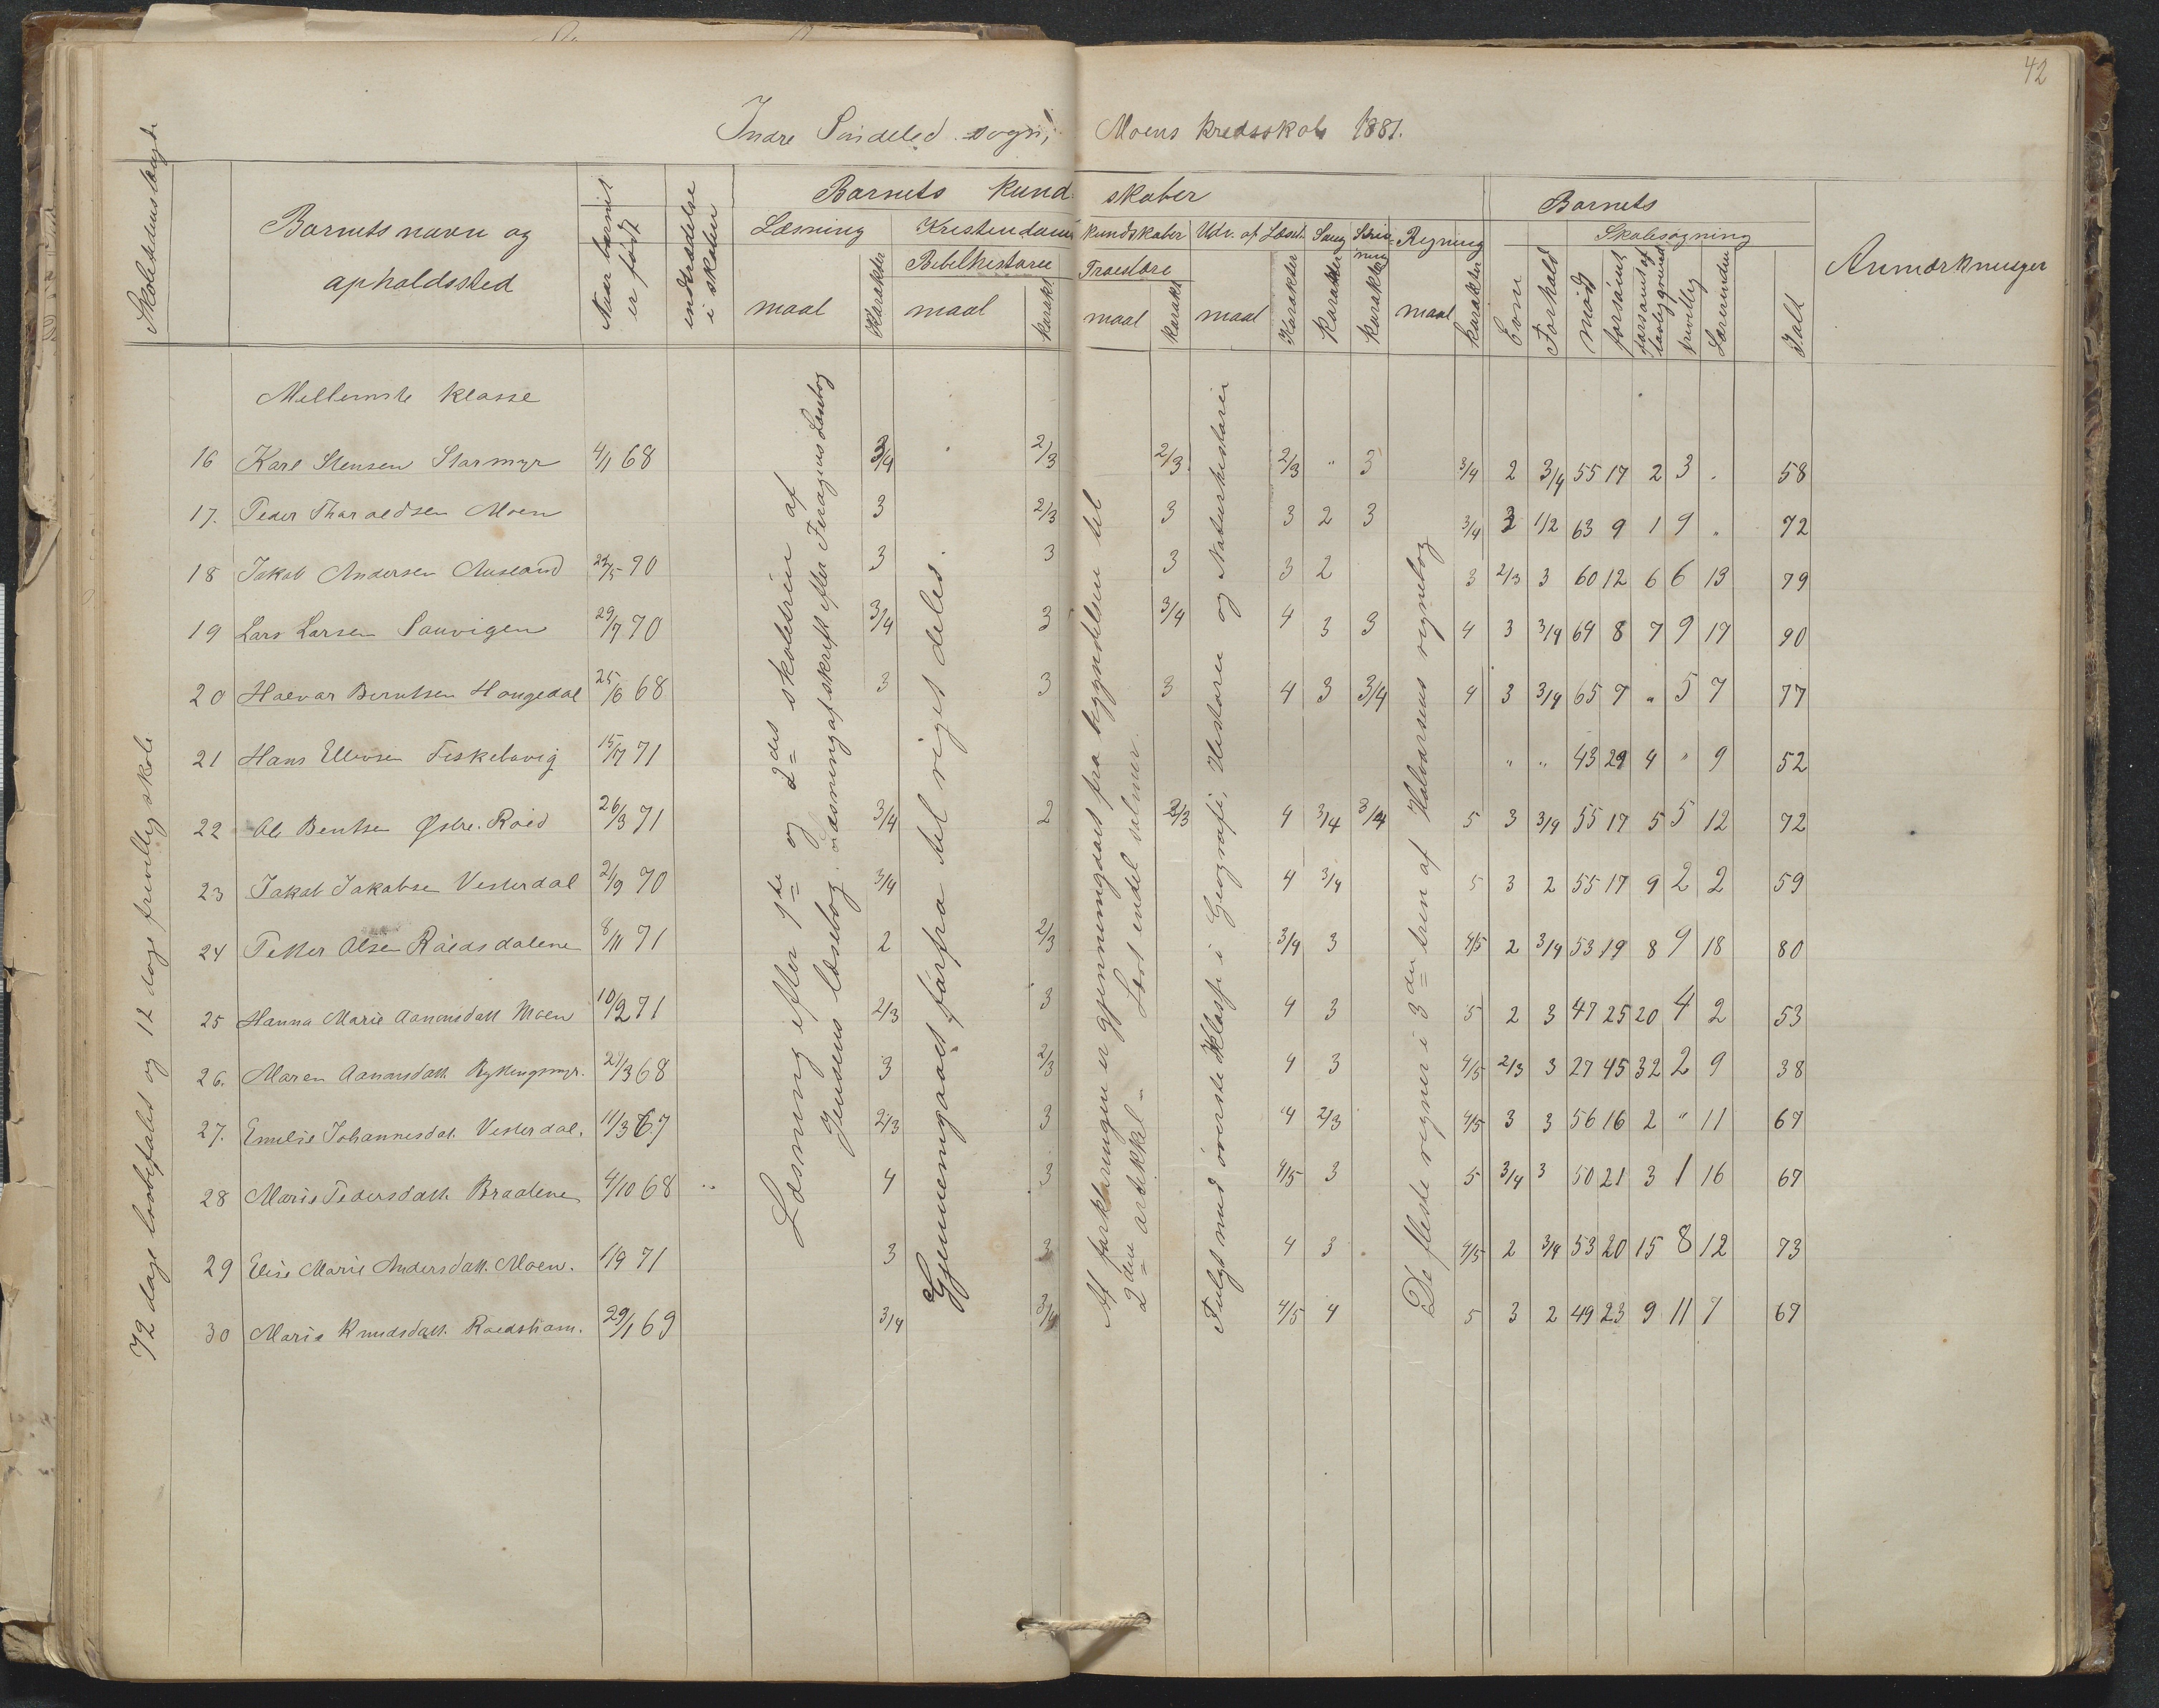 42
Indre Söndeled sogn, Moens kredsskole 1881.
Skoletidens længde
Barnets navn og opholdssted
Naar barnet er født
indtrædelse i skolen
Barnets kundskaber
Barnets
Anmærkninger
Læsning
Kristendomskundskaber
Udv. af Læseb.
Sang
Skrivning
Regning
Skolesøgning
Bibelhistorie
Troeslære
maal
Karakter
maal
karakt
maal
karakt
maal
Karakter
Karakter
karakter
maal
karakter
Evne
Forhold
mødt
forsømt
forsømt af lovlig grund
frivillig
Lærerinden
Ialt
72 dage lovbefalet og 12 dage frivillig skole
Mellemste klasse
16 Karl Stensen Starmyr 4/1 68 3/4 2/3 2/3 2/3 " 3 3/4 2 3/4 55 17 2 3 . 58
17. Peder Tharaldsen Moen 3 2/3 3 3 2 3 3/4 3 1/2 63 9 1 9 " 72
18 Jakob Andersen Ausland 24/5 70 3 3 3 3 2 3 2/3 3 60 12 6 6 13 79
19 Lars Larsen Sauvigen 29/7 70 3/4 3 3/4 4 3 3 4 3 3/4 64 8 7 9 17 90
20 Halvor Berntsen Hougedal 25/6 68 3 3 3 4 3 3/4 4 3 3/4 65 7 " 5 7 77
21 Hans Ellevsen Fiskebovig 15/7 71 " " 43 29 4 " 9 52
22 Ole Bentsen Østre. Roed 26/3 71 3/4 2 2/3 4 3/4 3/4 5 3 3/4 55 17 5 5 12 72
23 Jakob Jakobsen Vesterdal 2/9 70 3/4 4 3/4 5 3 2 55 17 9 2 2 59
24 Petter Olsen Roedsdalene 8/11 71 2 2/3 3/4 3 4/5 2 3/4 53 19 8 9 18 80
25 Hanna Marie Aanonsdatt Moen 10/2 71 2/3 3 4 3 5 2 3 47 25 20 4 2 53
26. Maren Aanonsdatt. Rykingsmyr. 21/3 68 3 2/3 4 3 4/5 2/3 3 27 45 32 2 9 38
27. Emelie Johannesdat. Vesterdal. 11/3 67 2/3 3 4 2/3 4/5 3 3 56 16 2 " 11 67
28 Marie Pedersdatt. Braatene 4/10 68 " 4 3 4/5 3 5 3/4 3 50 21 3 1 16 67
29 Elise Marie Andersdatt. Moen. 1/9 71 3 3 4 3 4/5 2 3/4 53 20 15 8 12 73
30 Marie Knudsdatt. Roedsham. 29/1 69 3/4 3/4 4/5 4 5 3 2 49 23 9 11 7 67
Læsning efter 1ste og 2det skoletrin af
Jensens læsebog. Læsning af skrift efter Feragens Læsebog
Gjennemgaaet forfra til riget deles.
Af forklaringen er gjennemgaaet fra begyndelsen til
2den artikkel – Lært endel salmer.
Fulgt med øverste Klasse i Geografi, Historie og Naturhistorie
De fleste regner i 3die trin af Halvorsens regnebog